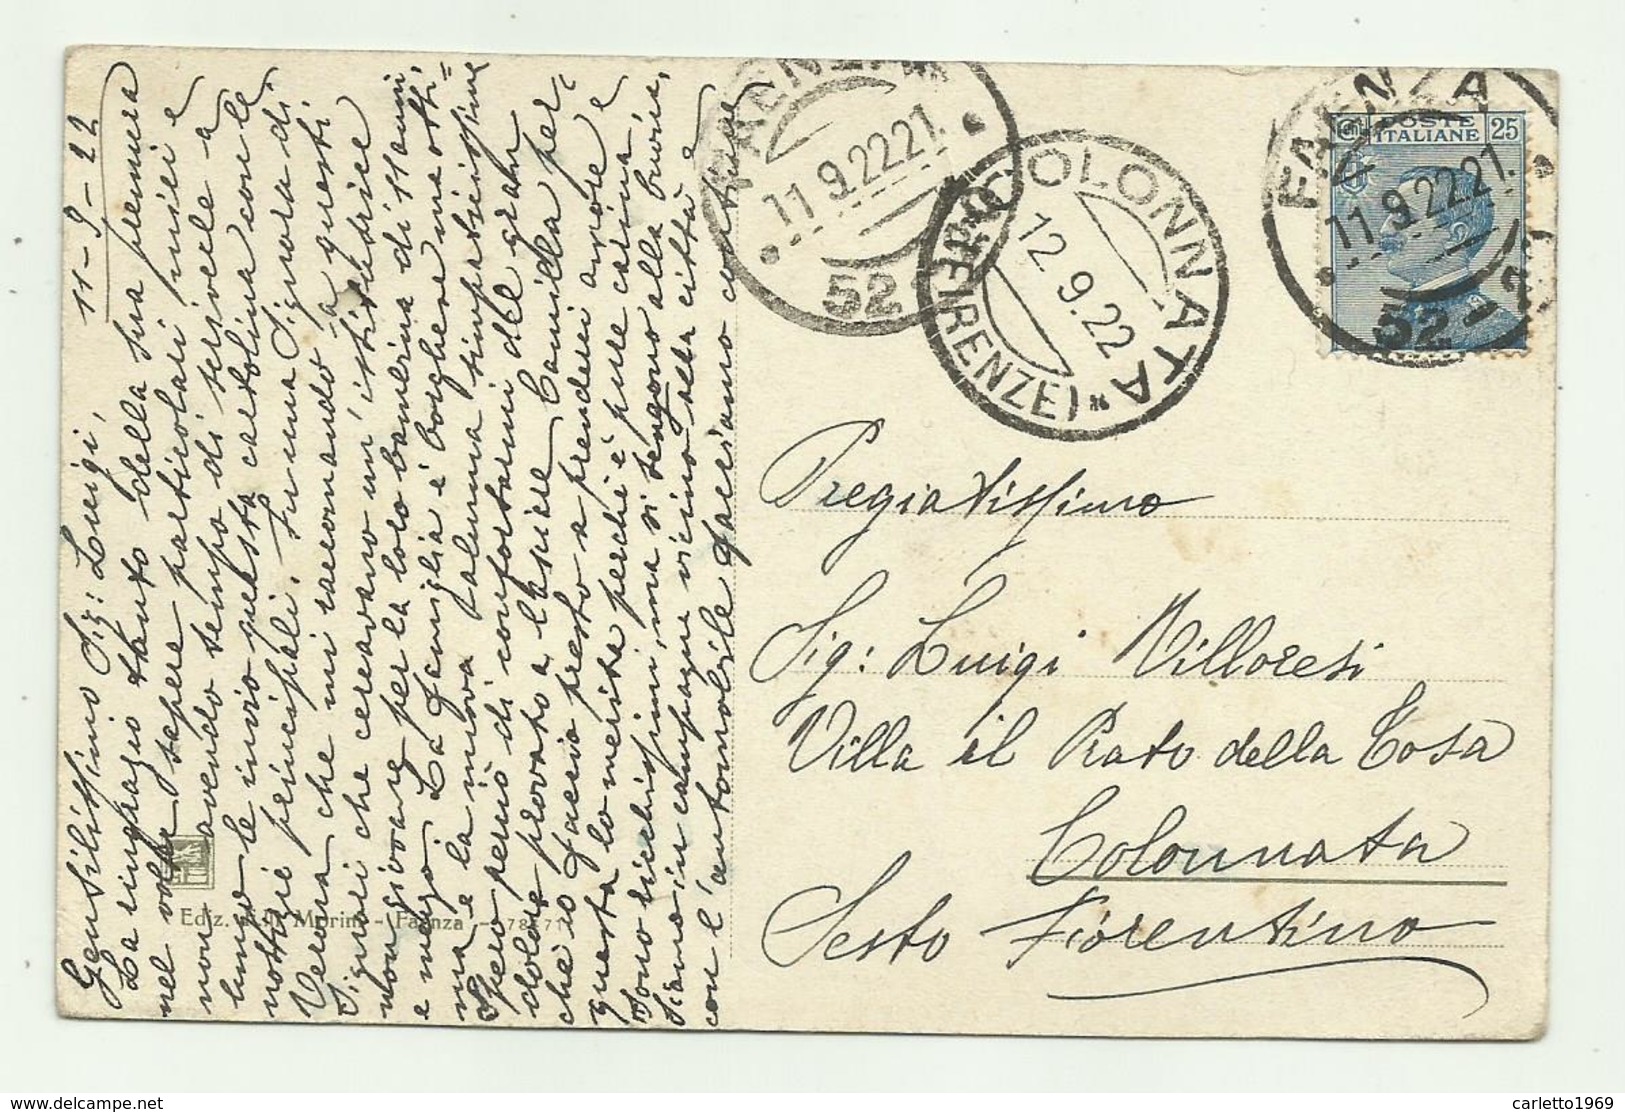 11-9-22
Gentilissimo Sig: Luigi,
La ringrazio tanto della sua premura
nel voler sapere particolari miei e
non avendo tempo di scrivcele a
lungo le invio questa cartolina con le
notizie principali. Fu una Signora di
Verona che mi raccomandò a questi
Signori che cercavano un'istitutrice
non giovane per la loro bambina di 11 anni.
e mezzo. La famiglia è borghese ma otti=
ma e la nuova alunna simpaticissima
Spero perciò di confortarmi del gran
dolore provato a lasciare Camilla per=
chè io faccio presto a prendervi amore e
questa lo merita perchè è pure carina.
Sono ricchissimi, ma si tengono alla buona,
Siamo in campagna vicino alla città e
con l'automobile facciamo continue
Ediz. Morini - Faenza
FAENZA
11.9.22 21.
52
COLONNATA
(FIRENZE)
12.9.22
FAENZA
11.9.22 21.
52
POSTE
ITALIANE
25
Pregiatissimo
Sig: Luigi Villoresi
Villa il Prato della Tosa
Colonnata
Sesto Fiorentino
carletto1969